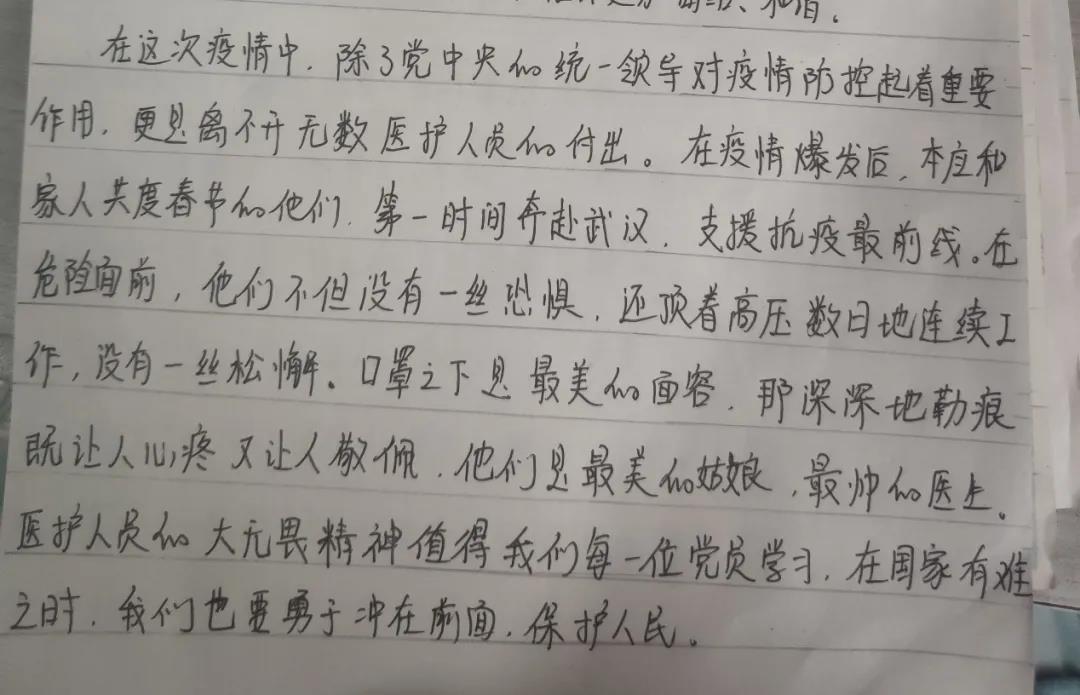 在这次疫情中,除了党中央的统一领导对疫情防控起着重要
作用,更是离不开无数医护人员的付出。在疫情爆发后,本应和
家人共度春节的他们,第一时间奔赴武汉,支援抗疫最前线。在
危险面前,他们不但没有一丝恐惧,还顶着高压数日地连续工
作,没有一丝松懈。口罩之下是最美的面容,那深深地勒痕
既让人心疼又让人敬佩,他们是最美的姑娘,最帅的医生。
医护人员的大无畏精神值得我们每一位党员学习,在国家有难
之时,我们也要勇于冲在前面,保护人民。